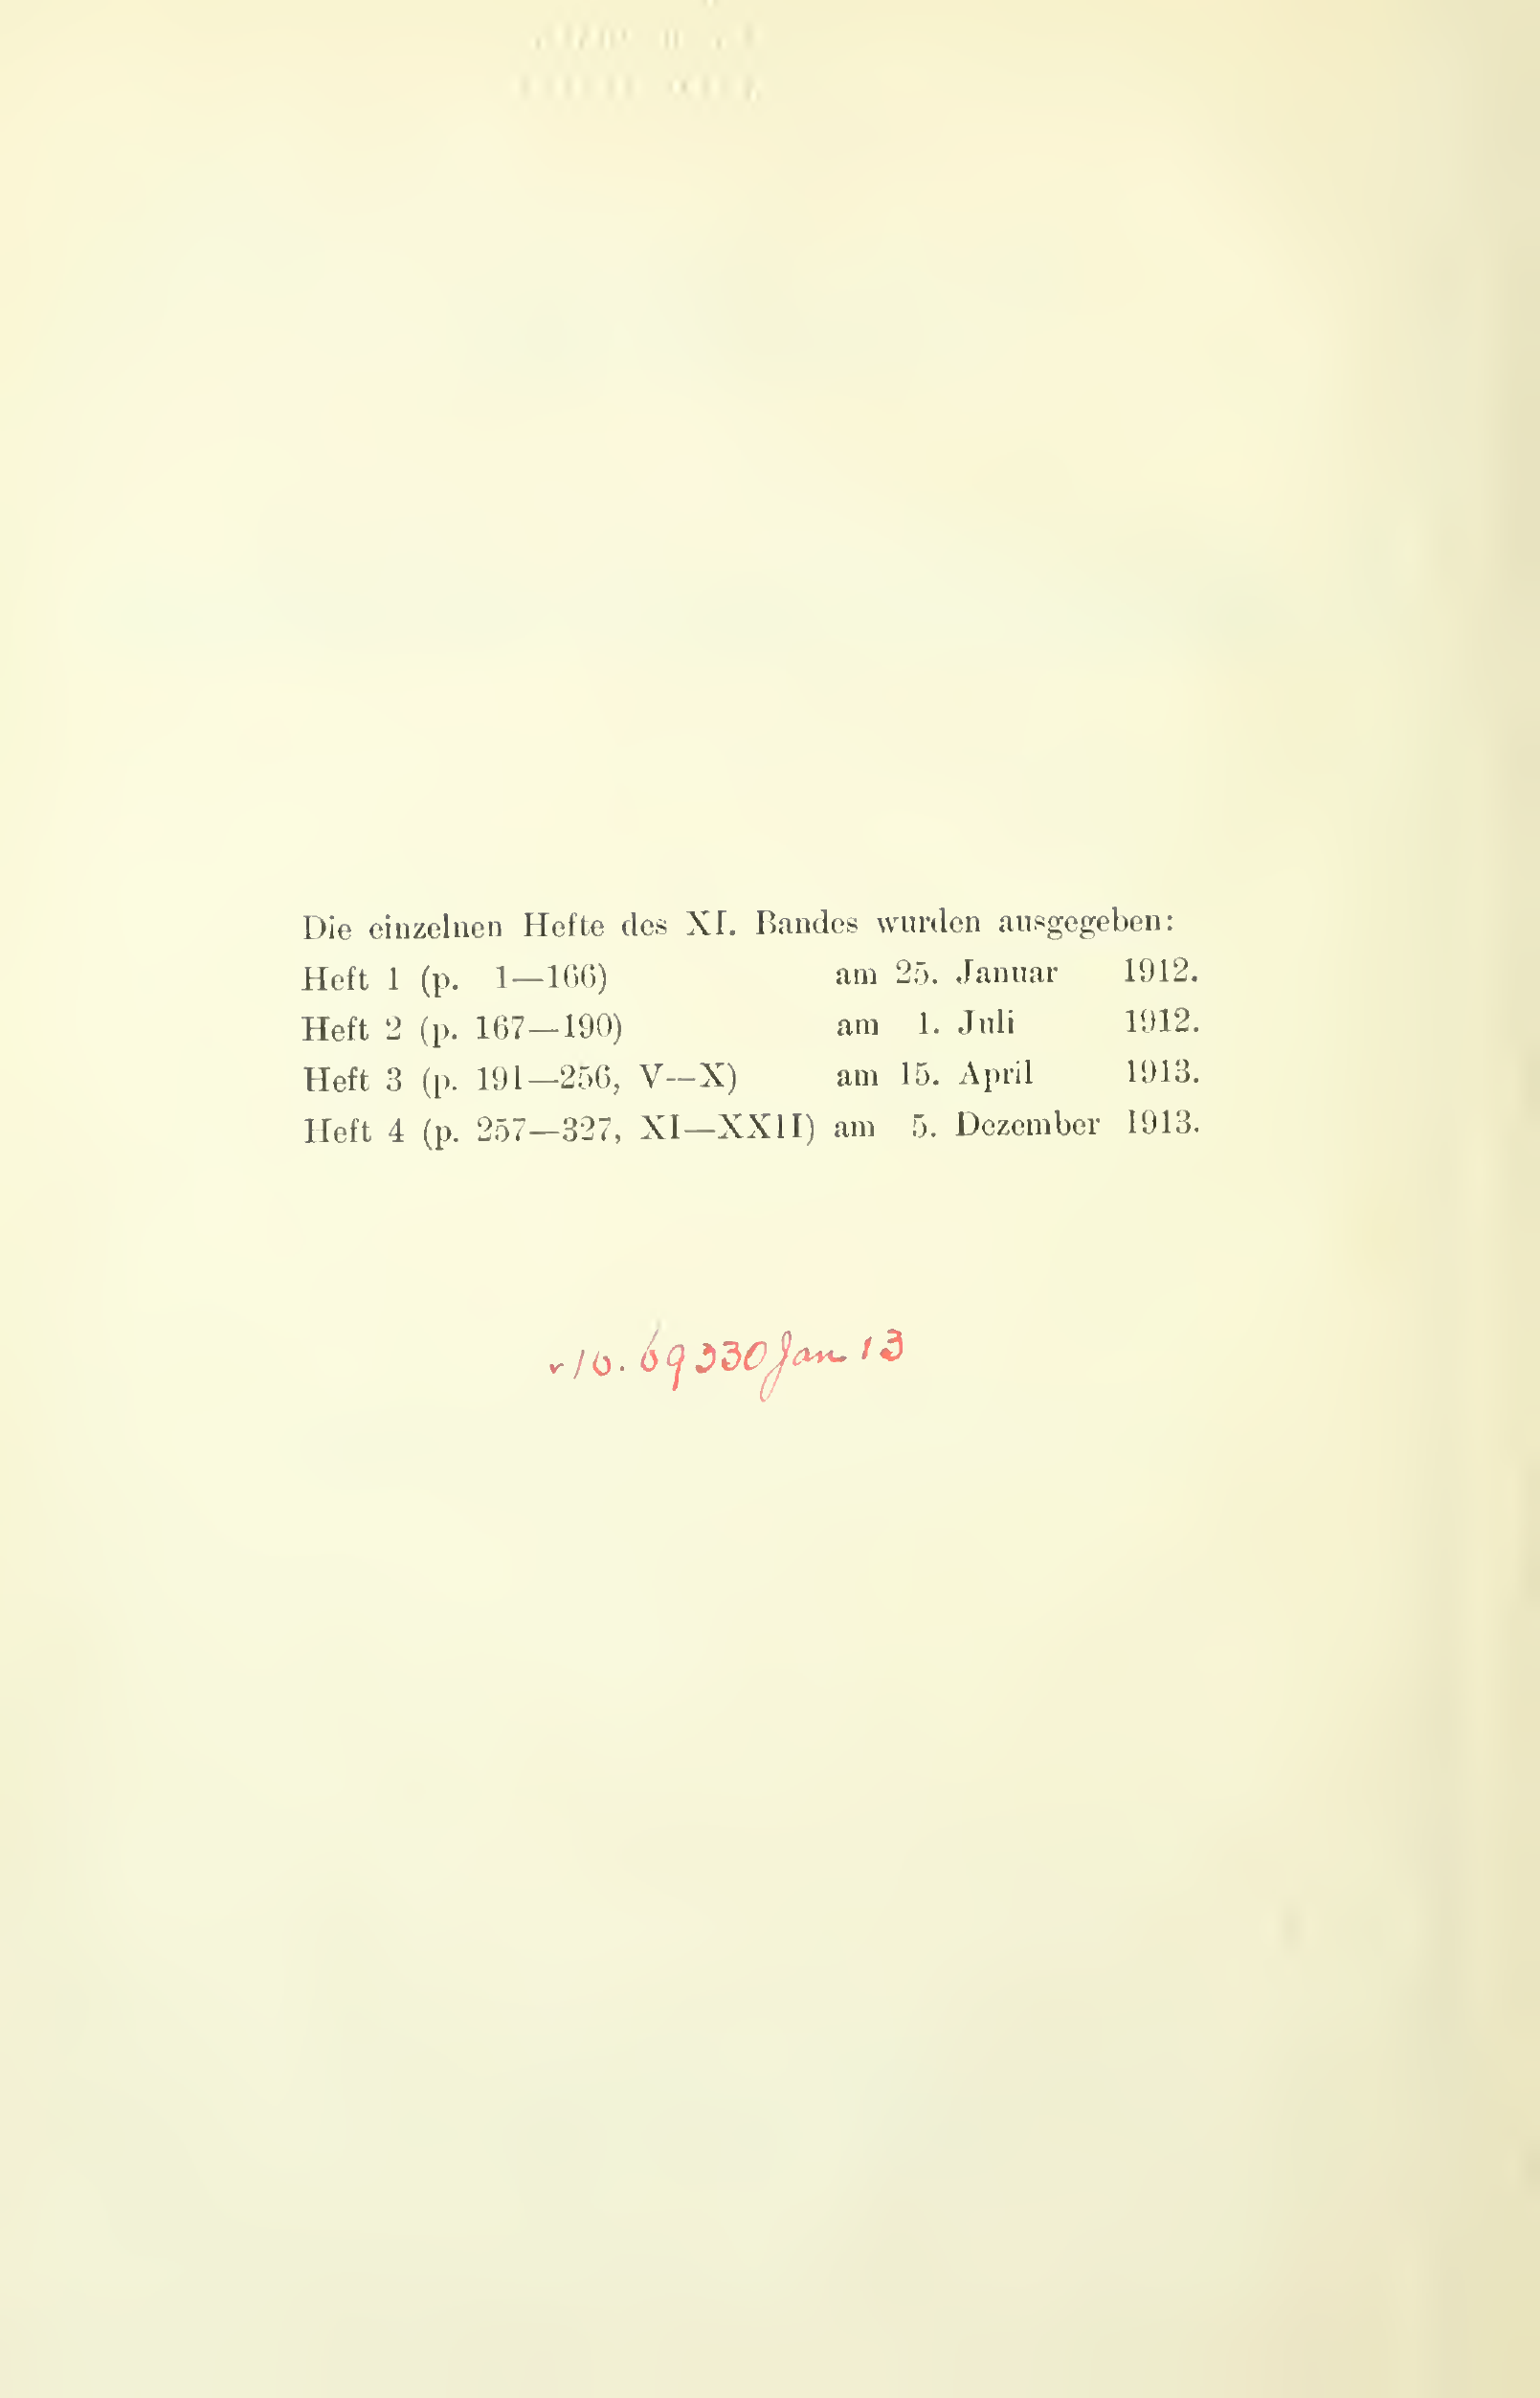 Die einzelnen Hefte des XI. Bandes wurden ausgegeben:
Heft 1 (p. 1—166) am 25. Januar 1912.
Heft 2 (p. 167—190) am 1. Juli 1912.
Heft 3 (p. 191—256, V—X) am 15. April 1913.
Heft 4 (p. 257—327, XI—XXII) am 5. Dezember 1913.
r10. 69330 Jan 13